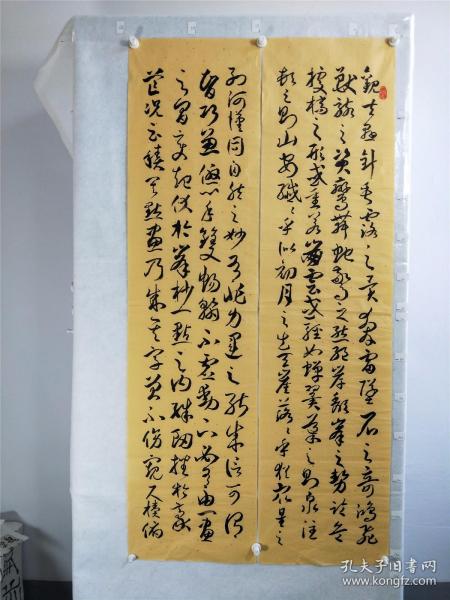 觀夫懸針垂露之異奔雷墜石之奇鴻飛
獸駭之資鸞舞蛇驚之態絕岸頹峯之勢臨危
據槁之形或重若崩雲或輕如蟬翼導之則泉注
頓之則山安纖〻乎似初月之出天崖落〻乎猶眾星之
列河漢同自然之妙有非力運之能成信可謂
智巧兼優心手雙暢翰不虛動下必有由一畫
之間變起伏於峯杪一點之內殊衄挫於豪
芒況云積其點畫乃成其字曾不傍窺尺牘俯
孔夫子旧书网
www.kongfz.com